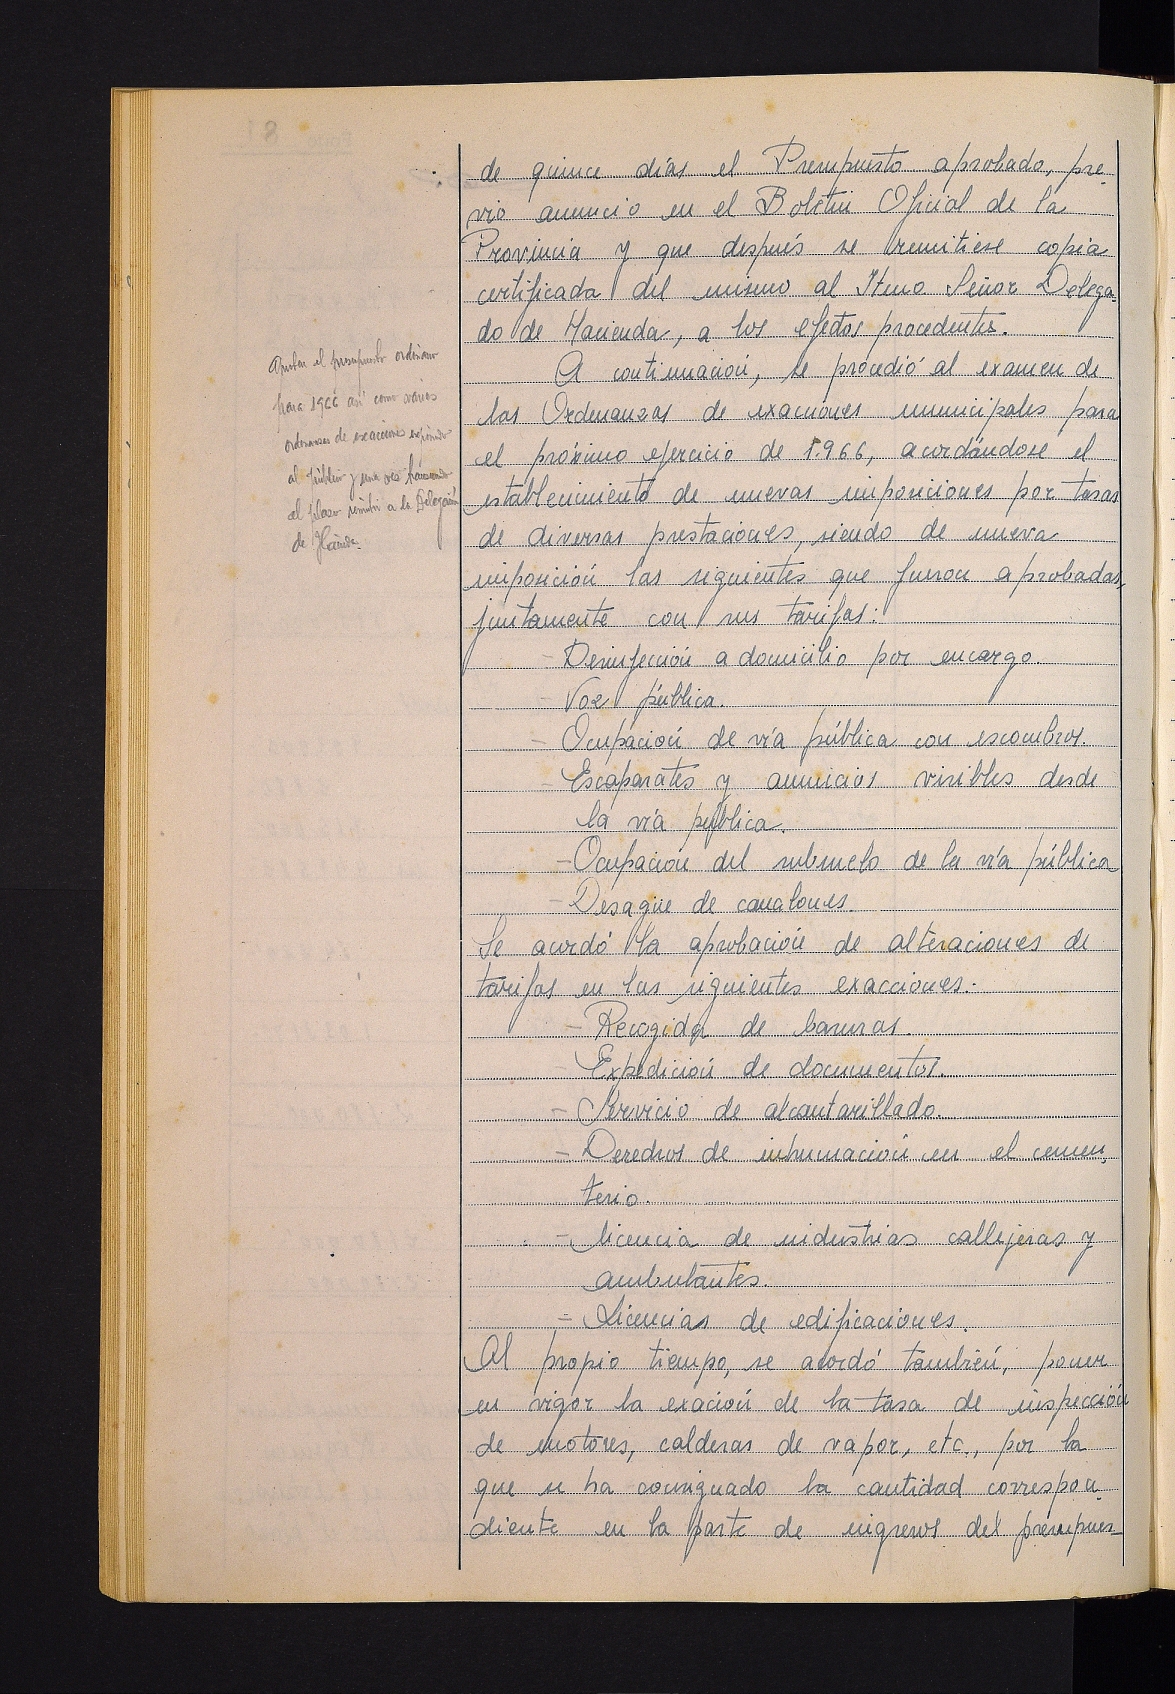 de quince días el Presupuesto aprobado, pre-
vio anuncio en el Boletin Oficial de la
Provincia y que después se remitiese copia
certificada del mismo al Iltmo Señor Delega-
do de Hacienda, a los efectos procedentes.
A continuación, se procedió al examen de
las Ordenanzas de exacciones municipales para
el próximo ejercicio de 1.966, acordándose el
establecimiento de nuevas imposiciones por tasas
de diversas prestaciones, siendo de nueva
imposición las siguientes que fueron aprobadas,
juntamente con sus tarifas:
- Desinfección a domicilio por encargo.
- Voz pública.
- Ocupación de vía pública con escombros.
- Escaparates y anuncios visibles desde
la vía pública.
- Ocupación del subsuelo de la vía pública
- Desagüe de canalones.
Se acordó la aprobación de alteraciones de
tarifas en las siguientes exacciones:
- Recogida de basuras.
- Expedición de documentos.
- Servicio de alcantarillado.
- Derechos de inhumación en el cemen-
terio.
- licencia de industrias callejeras y
ambulantes.
- Licencias de edificaciones.
Al propio tiempo, se acordó también, poner
en vigor la exación de la tasa de inspección
de motores, calderas de vapor, etc., por la
que se ha consignado la cantidad correspon-
diente en la parte de ingresos del presupues-
el presupuesto ordinario
para 1966 así como varias
ordenanzas de exacciones
al público y una vez
el plazo remitir a la Delegación
de Hacienda.